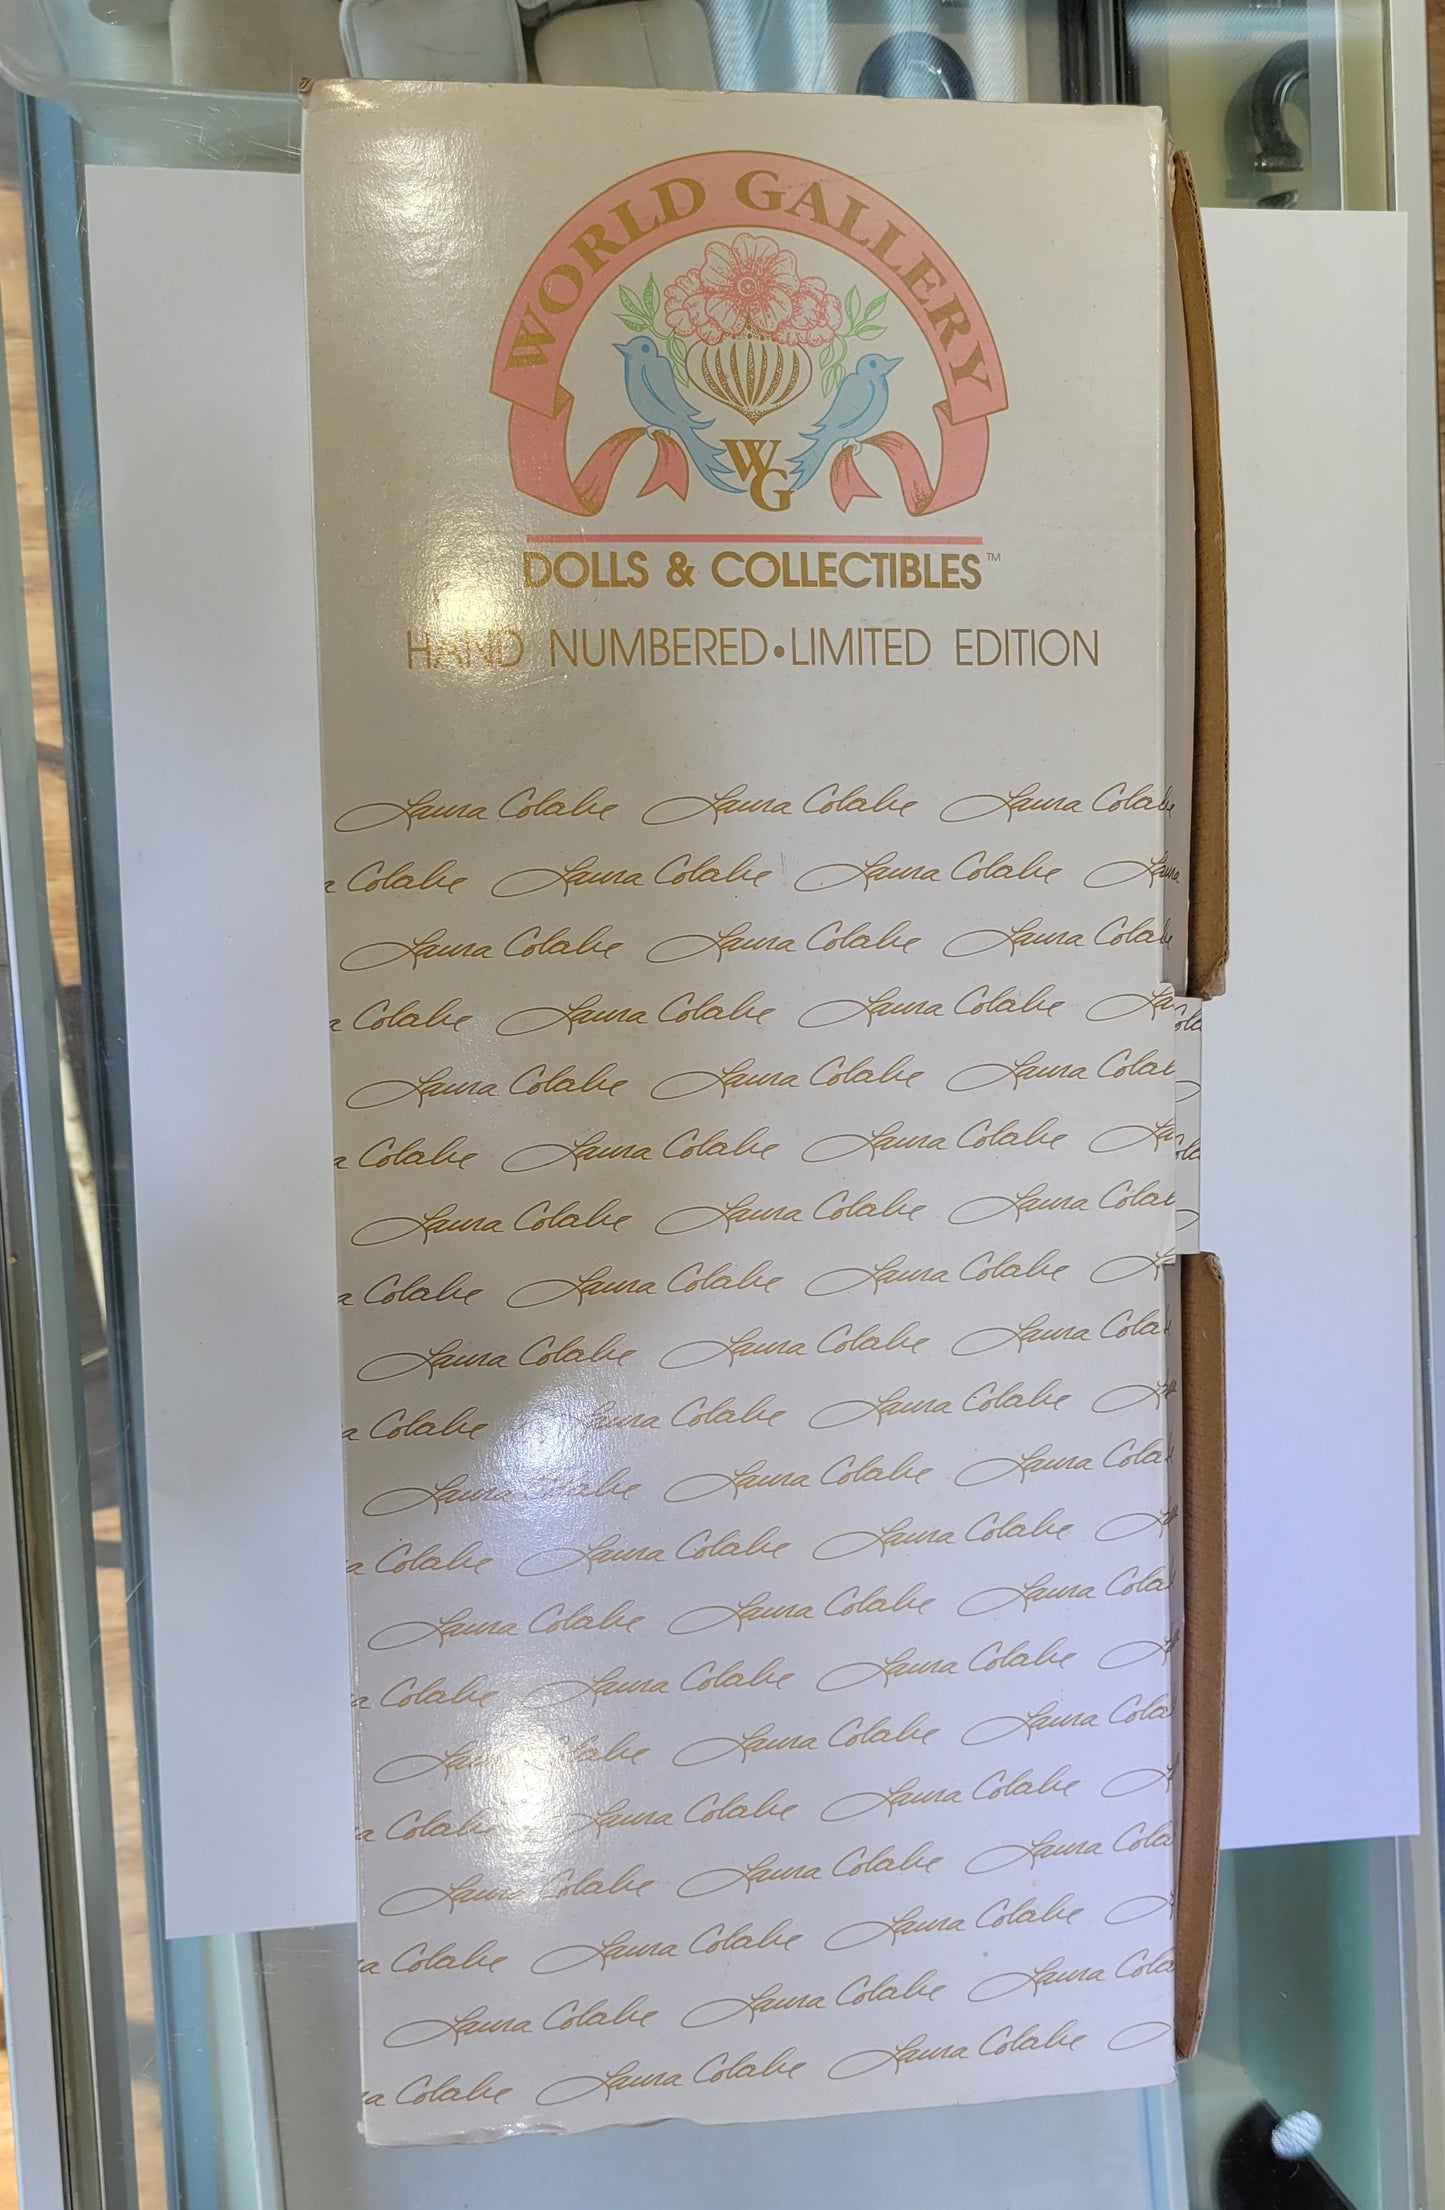 WORLD GALLERY
WG
DOLLS & COLLECTIBLES™
HAND NUMBERED•LIMITED EDITION
Laura Cobabe Laura Cobabe Laura Cobab
a Cobabe Laura Cobabe Laura Cobabe Laura
Laura Cobabe Laura Cobabe Laura Cobab
a Cobabe Laura Cobabe Laura Cobabe La
Laura Cobabe Laura Cobabe Laura Coba
a Cobabe Laura Cobabe Laura Cobabe La
Laura Cobabe Laura Cobabe Laura Coba
a Cobabe Laura Cobabe Laura Cobabe L
Laura Cobabe Laura Cobabe Laura Coba
a Cobabe Laura Cobabe Laura Cobabe L
Laura Cobabe Laura Cobabe Laura Coba
a Cobabe Laura Cobabe Laura Cobabe L
Laura Cobabe Laura Cobabe Laura Coba
a Cobabe Laura Cobabe Laura Cobabe L
Laura Cobabe Laura Cobabe Laura Coba
a Cobabe Laura Cobabe Laura Cobabe L
Laura Cobabe Laura Cobabe Laura Coba
a Cobabe Laura Cobabe Laura Cobabe L
Laura Cobabe Laura Cobabe Laura Coba
a Cobabe Laura Cobabe Laura Cobabe